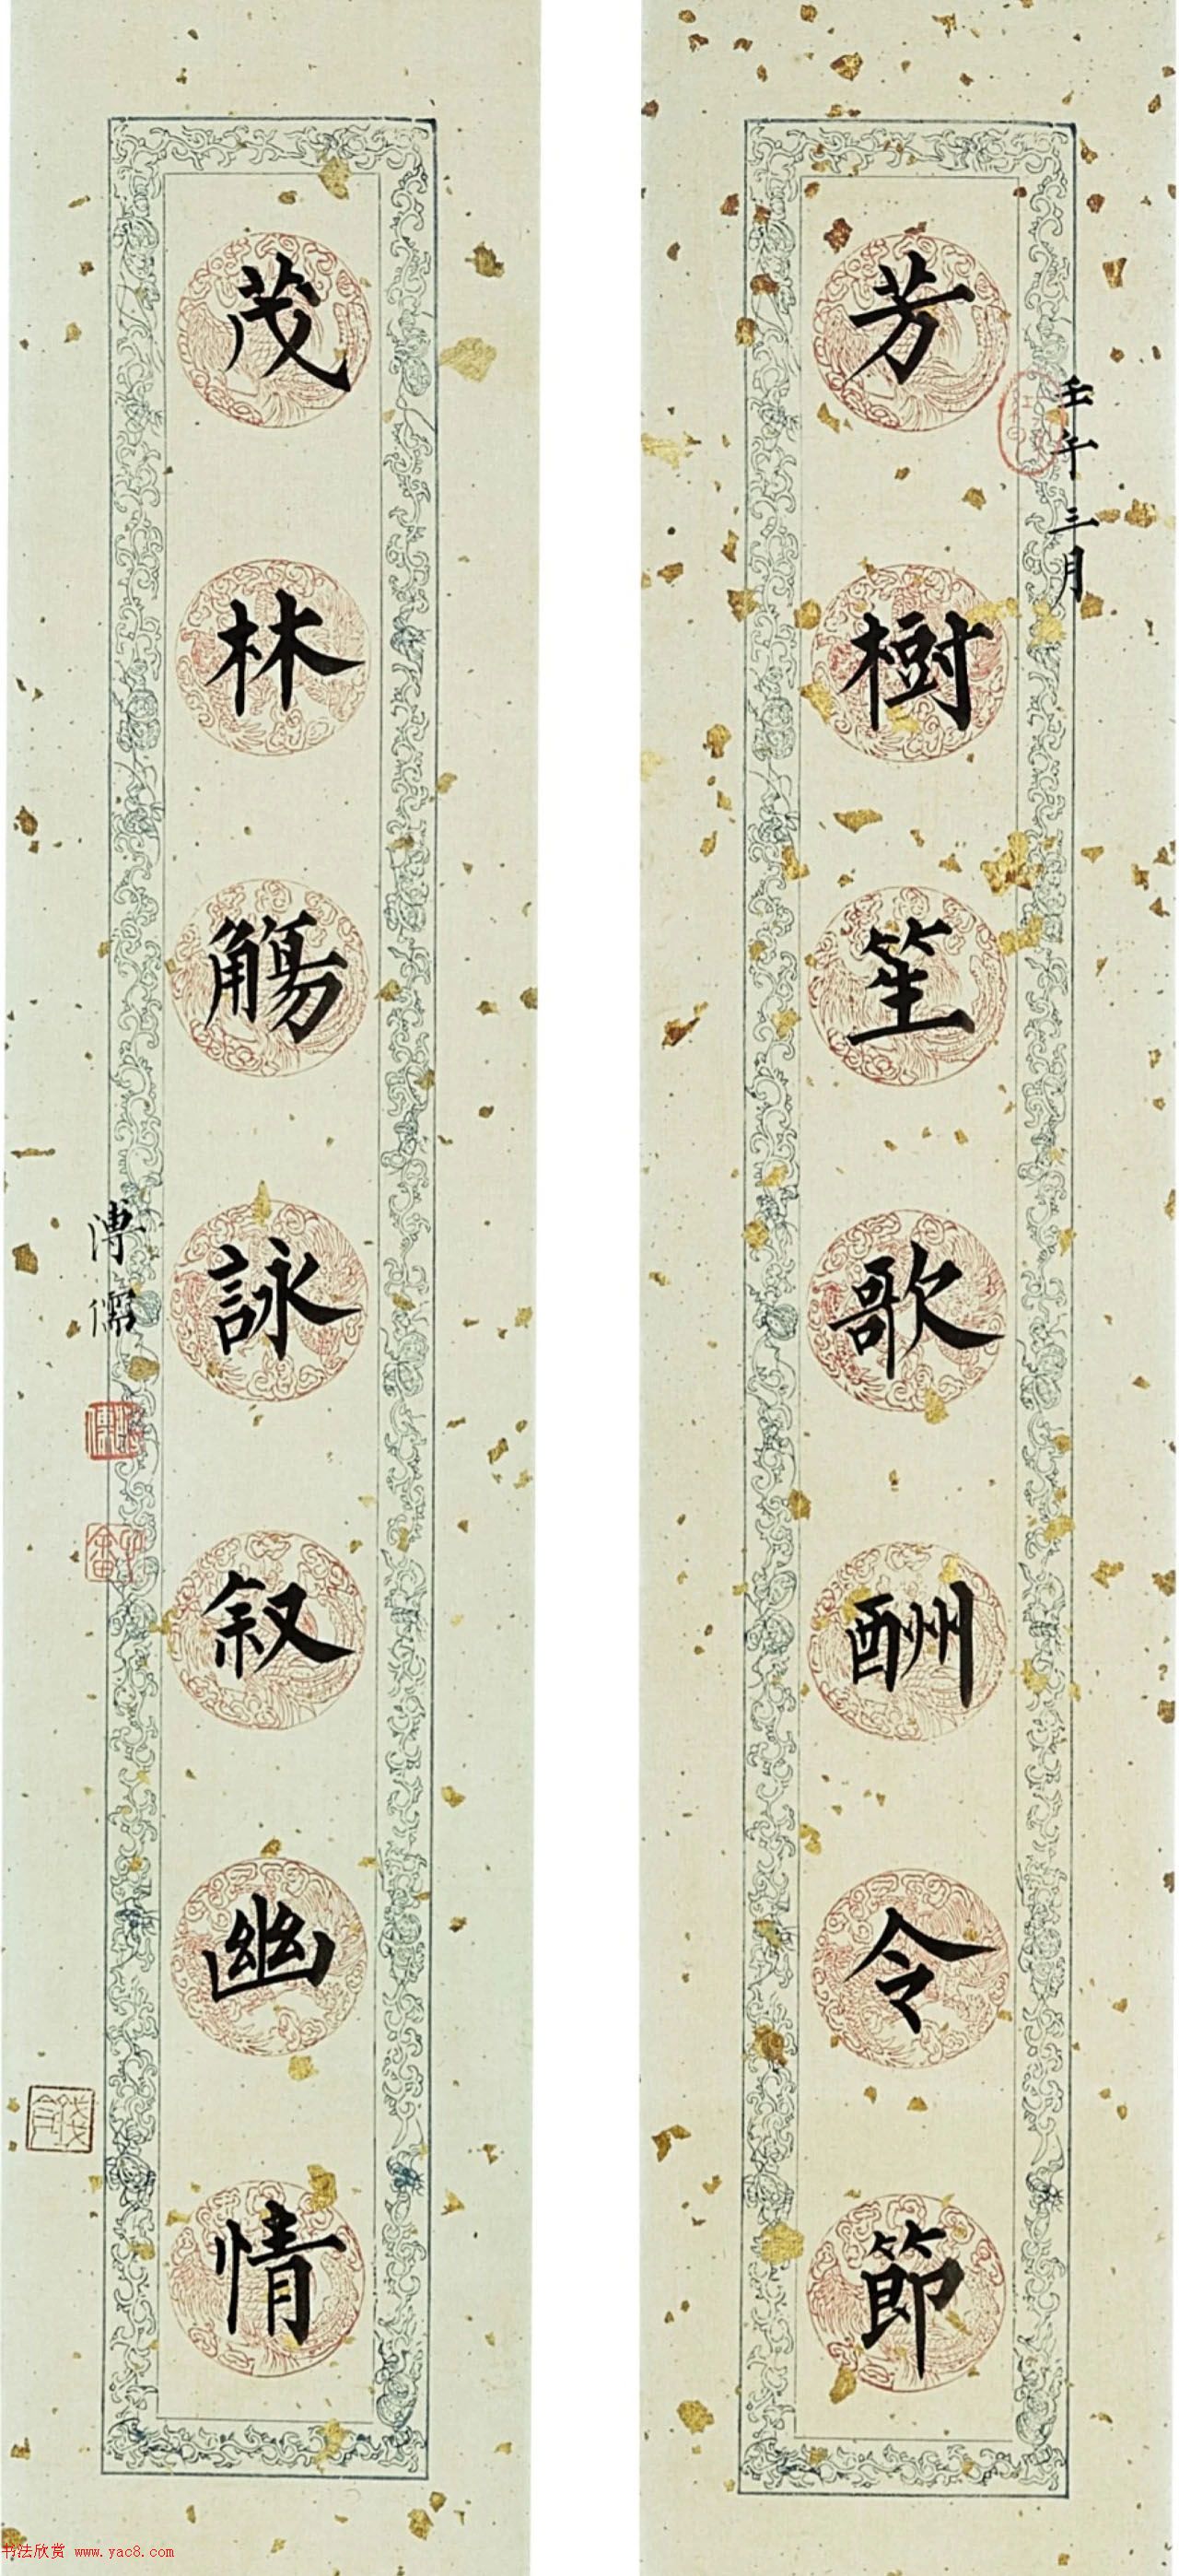 壬午三月
芳樹笙歌酬令節
茂林觴詠叙幽情
溥儒
书法欣赏 www.yac8.com